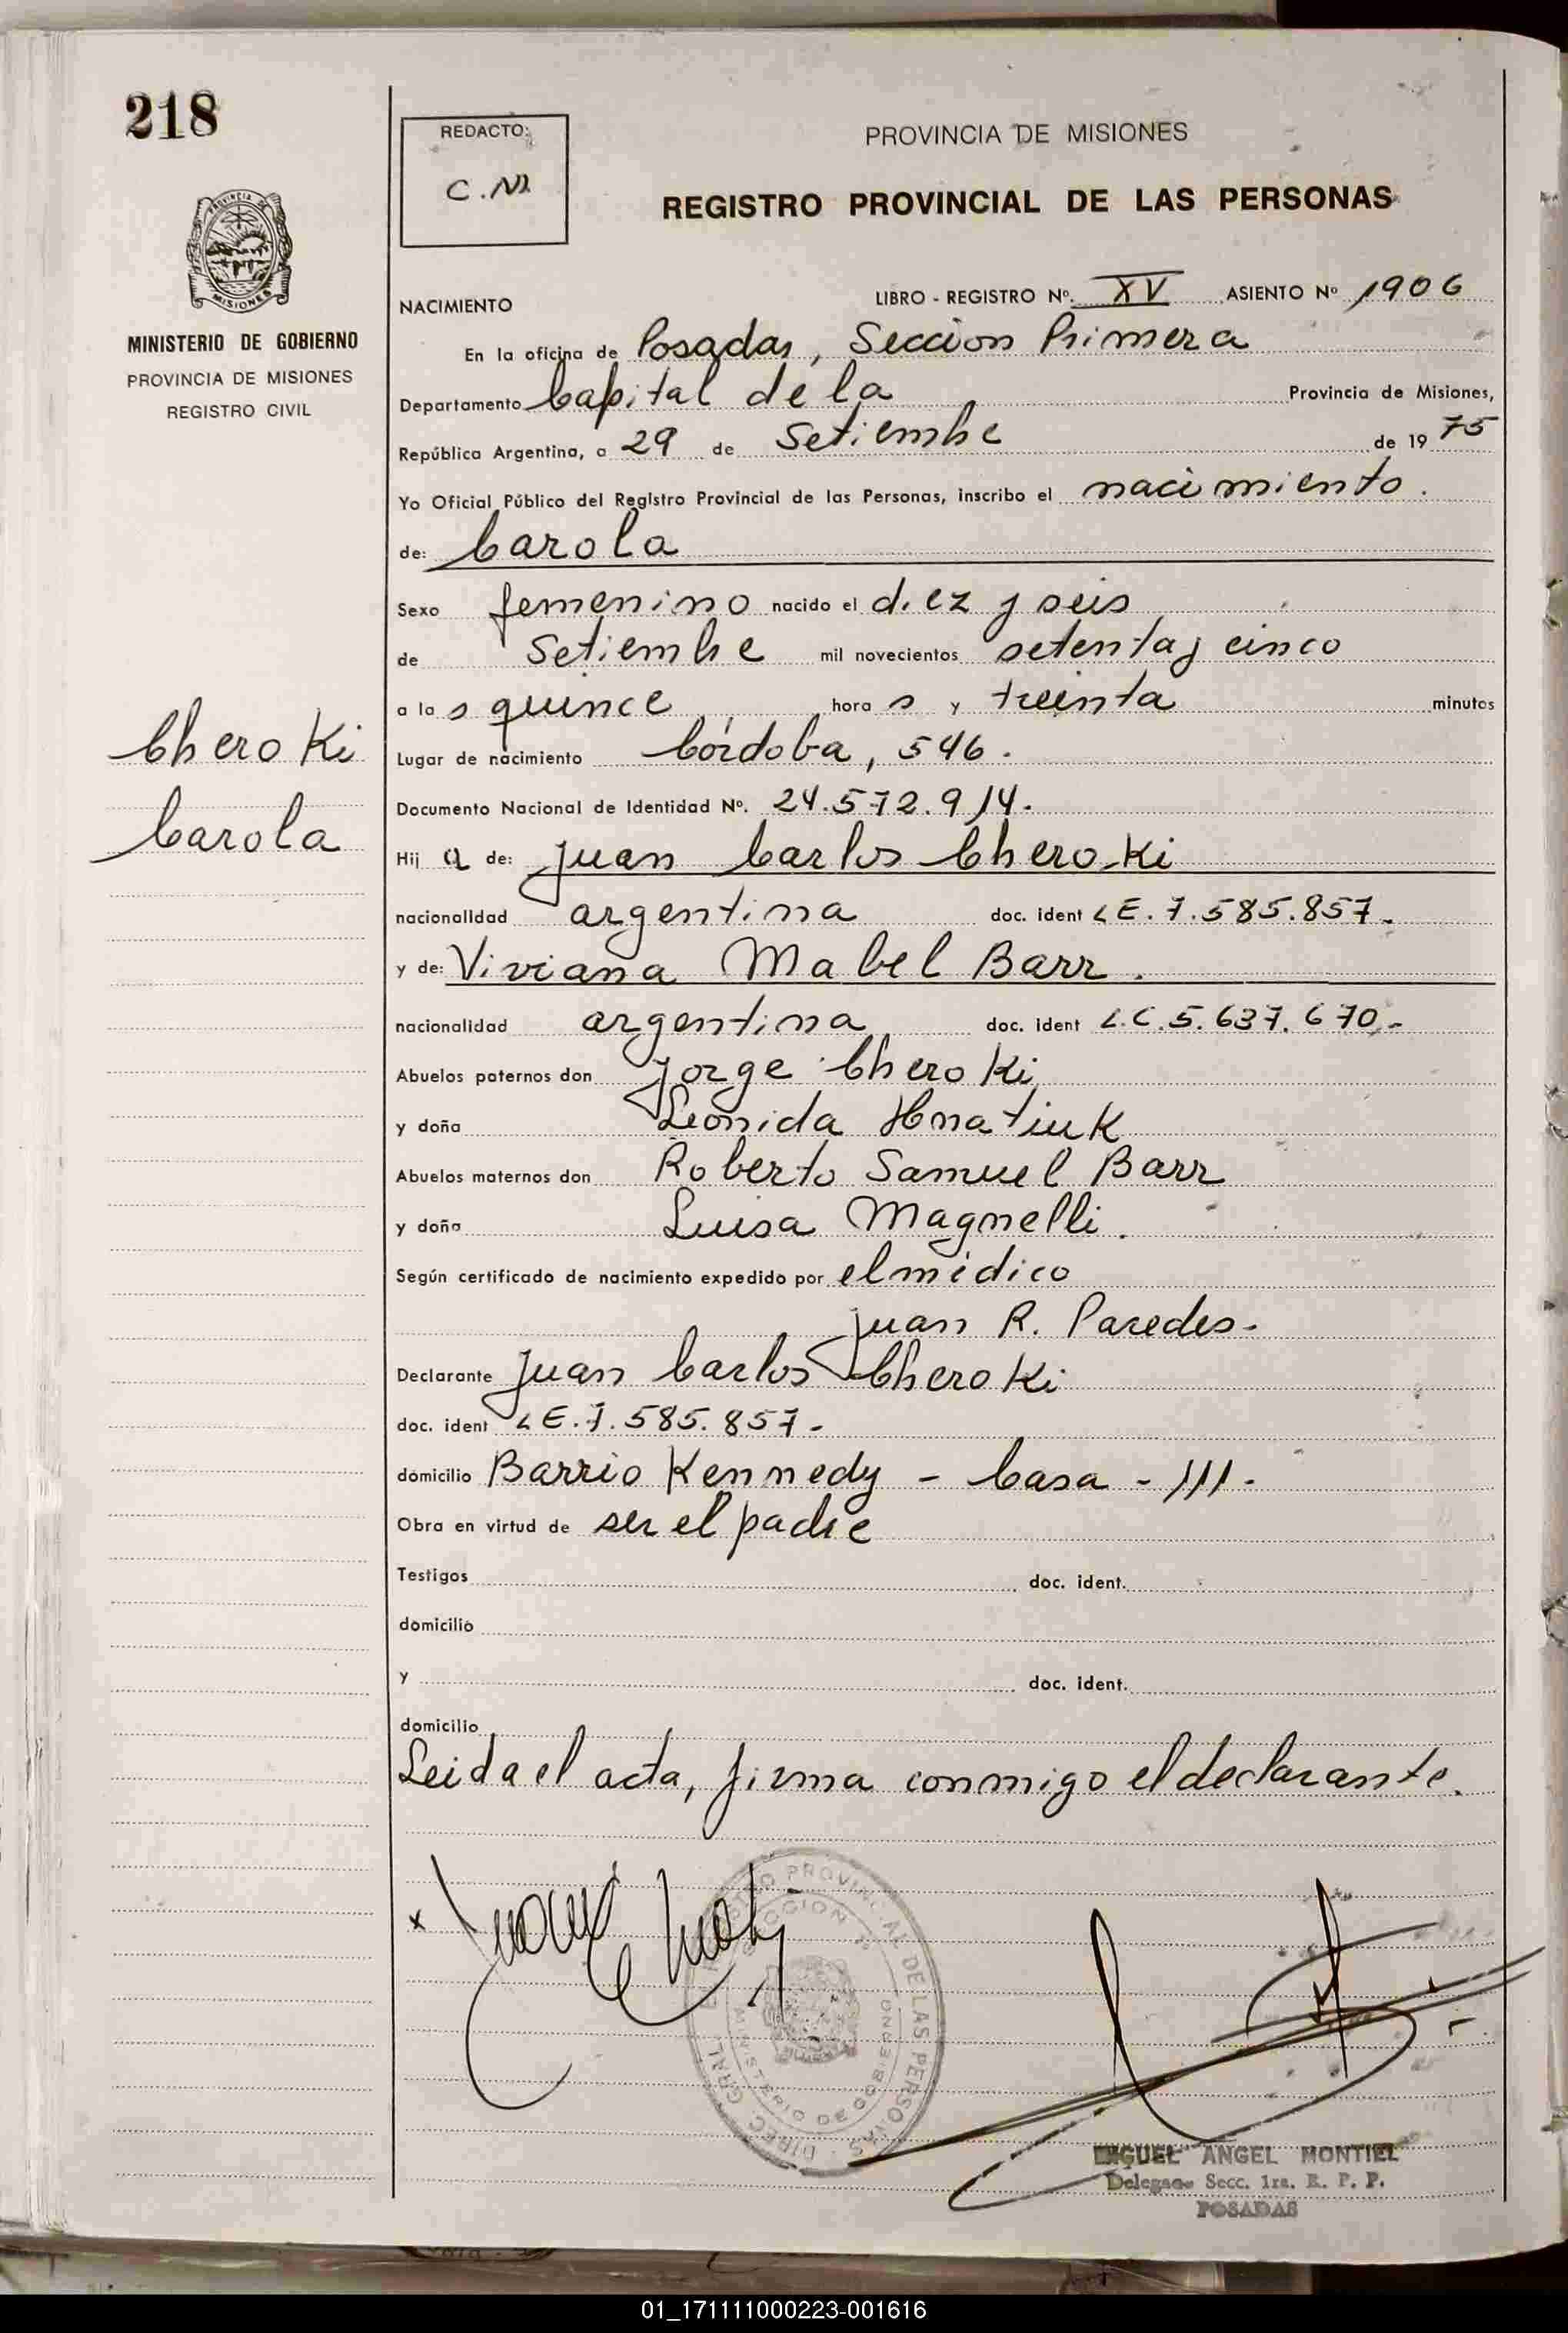 218
REDACTO:
C.N.
PROVINCIA DE MISIONES
REGISTRO PROVINCIAL DE LAS PERSONAS
PROVINCIA DE
MISIONES
MINISTERIO DE GOBIERNO
PROVINCIA DE MISIONES
REGISTRO CIVIL
NACIMIENTO
LIBRO - REGISTRO Nº. XV ASIENTO Nº 1906
En la oficina de Posadas, Seccion Primera
Departamento Capital de la Provincia de Misiones,
República Argentina, a 29 de Setiembre de 1975
Yo Oficial Público del Registro Provincial de las Personas, inscribo el nacimiento.
de: Carola
Sexo femenino nacido el diez y seis
de Setiembre mil novecientos setenta y cinco
a las quince horas y treinta minutos
Cheroki
Carola
Lugar de nacimiento Córdoba, 546.
Documento Nacional de Identidad Nº. 24.572.914.
Hija de: Juan Carlos Cheroki
nacionalidad argentina doc. ident LE. 7.585.857.
y de: Viviana Mabel Barr.
nacionalidad argentina doc. ident L.C. 5.637.670.-
Abuelos paternos don Jorge Cheroki
y doña Leonida Hnatiuk
Abuelos maternos don Roberto Samuel Barr
y doña Luisa Magnelli.
Según certificado de nacimiento expedido por el médico
Juan R. Paredes.
Declarante Juan Carlos Cheroki
doc. ident LE. 7.585.857.
domicilio Barrio Kennedy - Casa - 111.
Obra en virtud de ser el padre
Testigos doc. ident.
domicilio
y doc. ident.
domicilio
Leida el acta, firma conmigo el declarante.
x
REGISTRO PROVINCIAL DE LAS PERSONAS · DIREC. GRAL.
MINISTERIO DE GOBIERNO
MIGUEL ANGEL MONTIEL
Delegado Secc. 1ra. R. P. P.
POSADAS
01_171111000223-001616